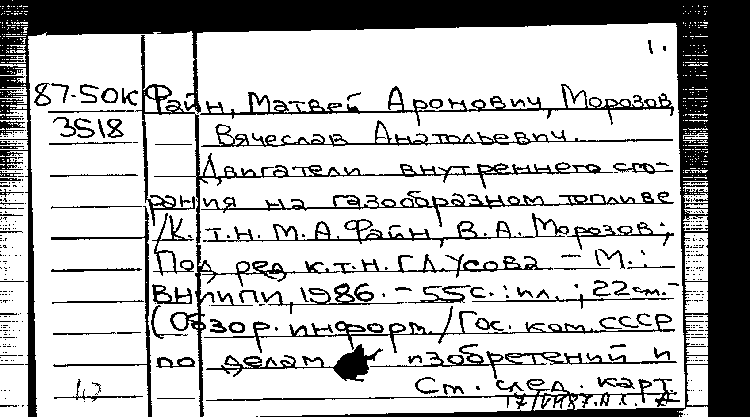 1.
87-50К Файн, Матвей Аронович, Морозов,
3518 Вячеслав Анатольевич.
Двигатели внутреннего сго-
рания на газообразном топливе
/К.т.н. М.А. Файн, В.А. Морозов;
Под ред. к.т.н. Г.Л. Усова - М.:
ВНИИПИ, 1986. - 55с.: ил.; 22см.-
(Обзор. информ. / Гос. ком. СССР
по делам изобретений и
См. след. карт.